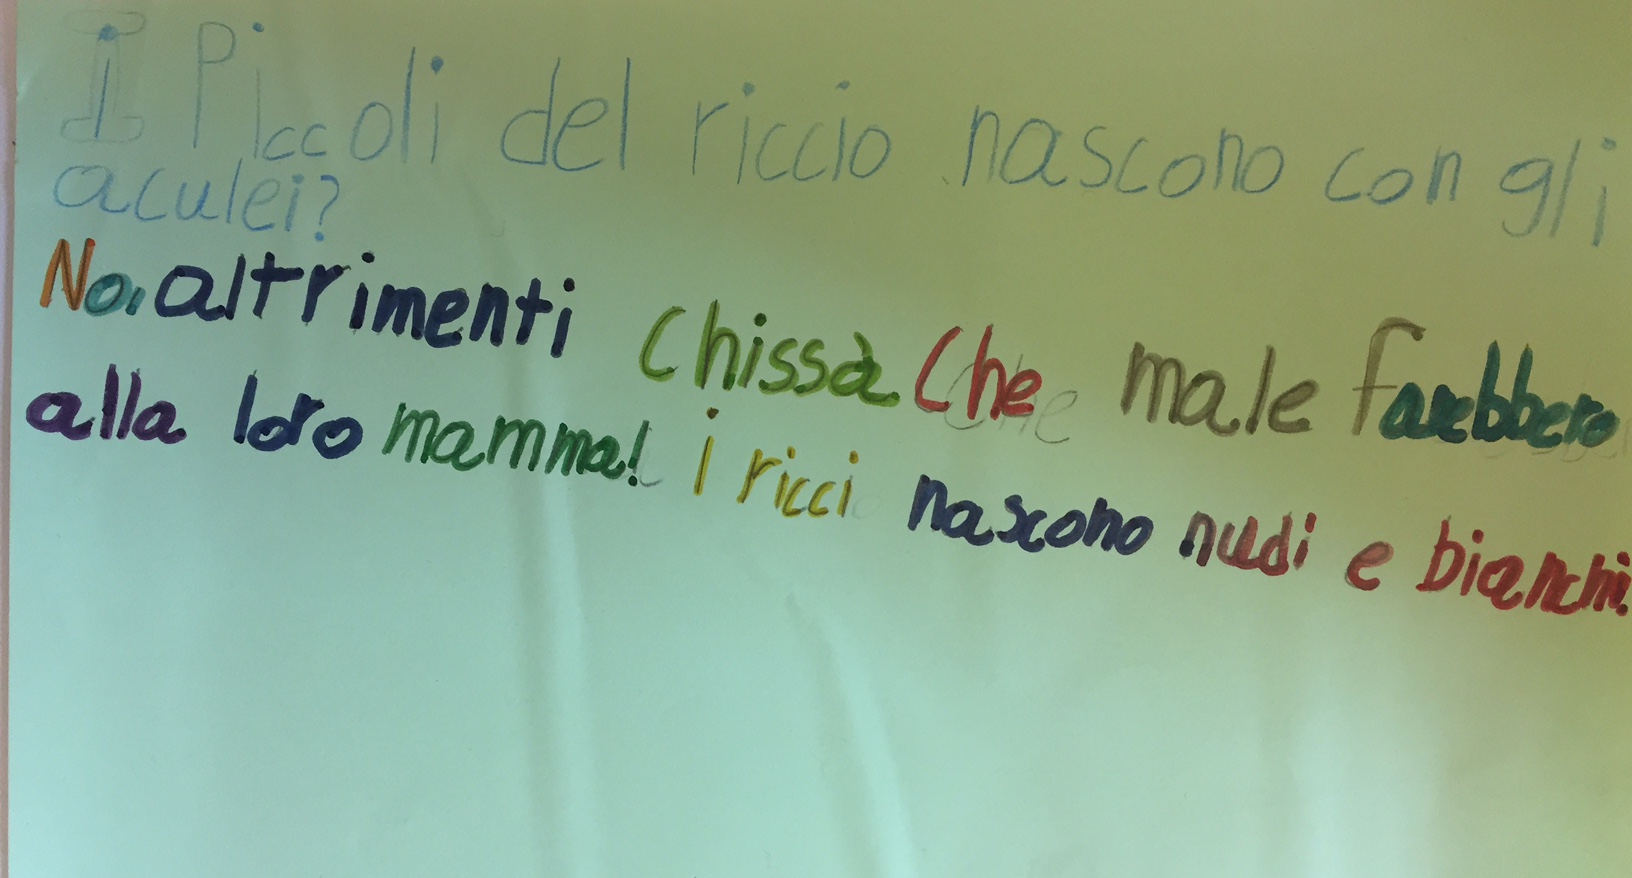 I Piccoli del riccio nascono con gli
aculei?
No, altrimenti chissà che male farebbero
alla loro mamma! i ricci nascono nudi e bianchi.